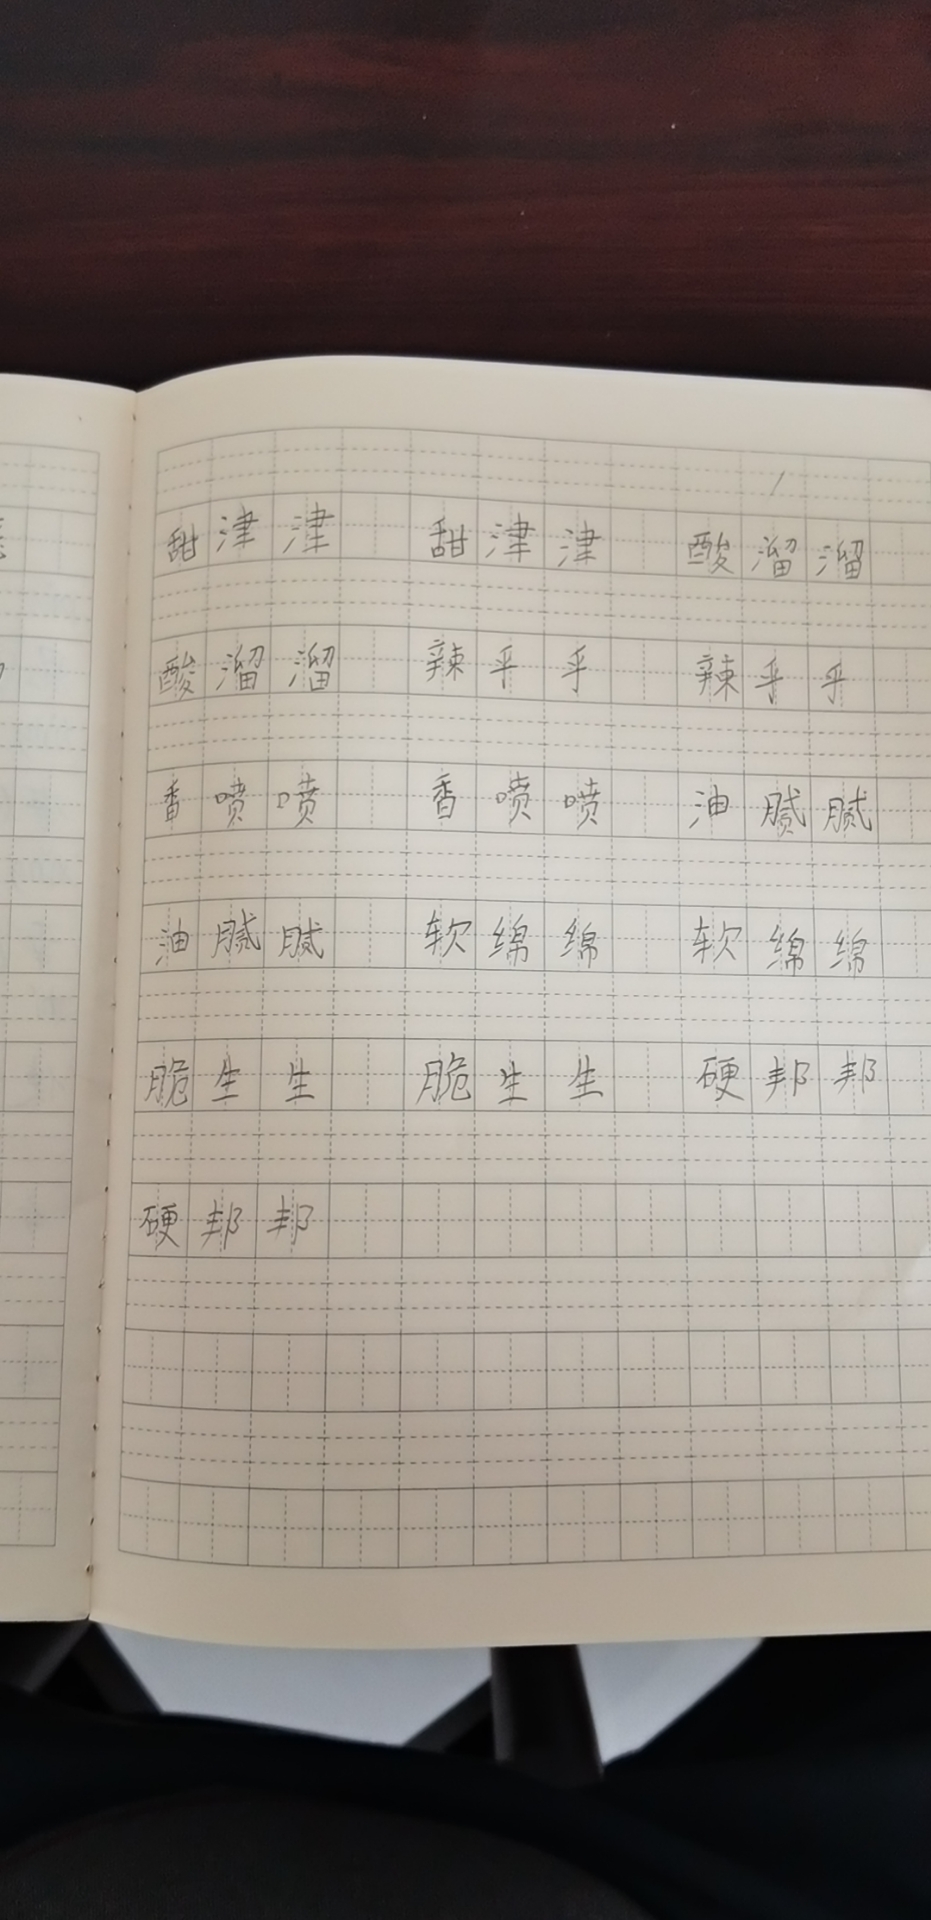 甜津津 甜津津 酸溜溜
酸溜溜 辣乎乎 辣乎乎
香喷喷 香喷喷 油腻腻
油腻腻 软绵绵 软绵绵
脆生生 脆生生 硬邦邦
硬邦邦